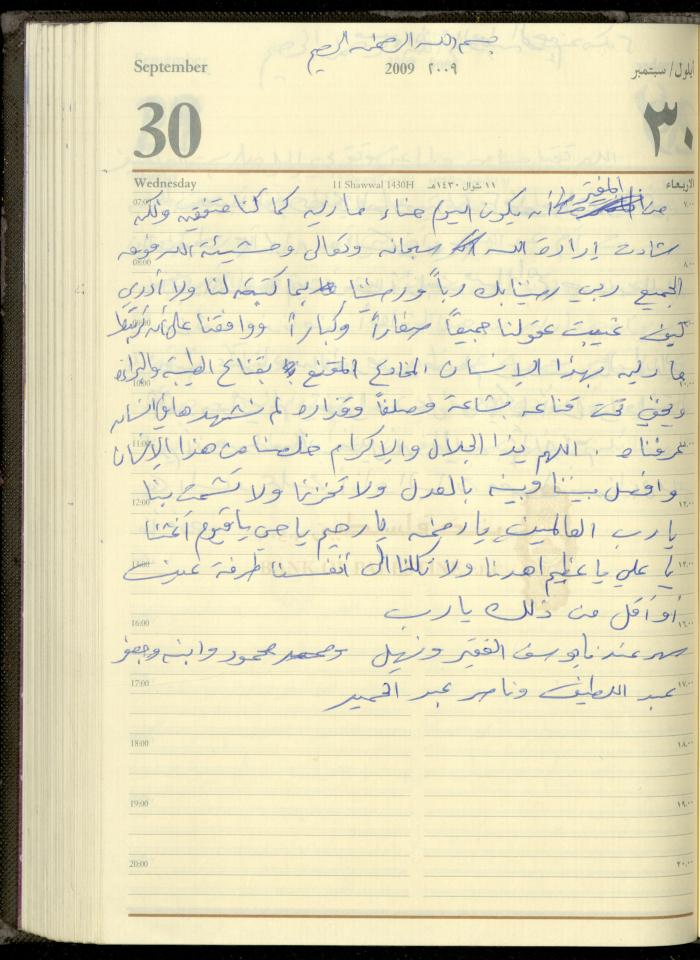 بسم الله الرحمن الرحيم
September 2009 ٢٠٠٩ أيلول/ سبتمبر
30 ٣٠
Wednesday 11 Shawwal 1430H ١١ شوال ١٤٣٠هـ الأربعاء
المقرر
من أن يكون اليوم حناء مارليه كما كنا متفقين ولكن
07:00 ٧:٠٠
شاءت إرادة الله سبحانه وتعالى ومشيئة الله فوق
08:00 ٨:٠٠
الجميع ربي رضينا بك رباً ورضينا بما كتبته لنا ولا أدري
كيف غيبت عقولنا جميعاً صغاراً وكباراً ووافقنا على أن
مارليه بهذا الإنسان المخادع المقنع بقناع الطيبة والبراءة
10:00 ١٠:٠٠
ويخفي تحت قناعه بشاعة وصلفاً وقذارة لم نشهدها في إنسان
11:00
عرفناه . اللهم يا ذا الجلال والإكرام خلصنا من هذا الإنسان
وافصل بيننا وبينه بالعدل ولا تخزنا ولا تشمت بنا
12:00 ١٢:٠٠
يا رب العالمين يا رحمن يا رحيم يا حي يا قيوم أغثنا
يا علي يا عظيم اهدنا ولا تكلنا الى أنفسنا طرفة عين
١٣:٠٠
أو أقل من ذلك يا رب
16:00 ١٦:٠٠
سهر عندنا يوسف الفقير ونهيل محمود وابنه
17:00 ١٧:٠٠
عبد اللطيف وناصر عبد الحميد
18:00 ١٨:٠٠
19:00 ١٩:٠٠
20:00 ٢٠:٠٠